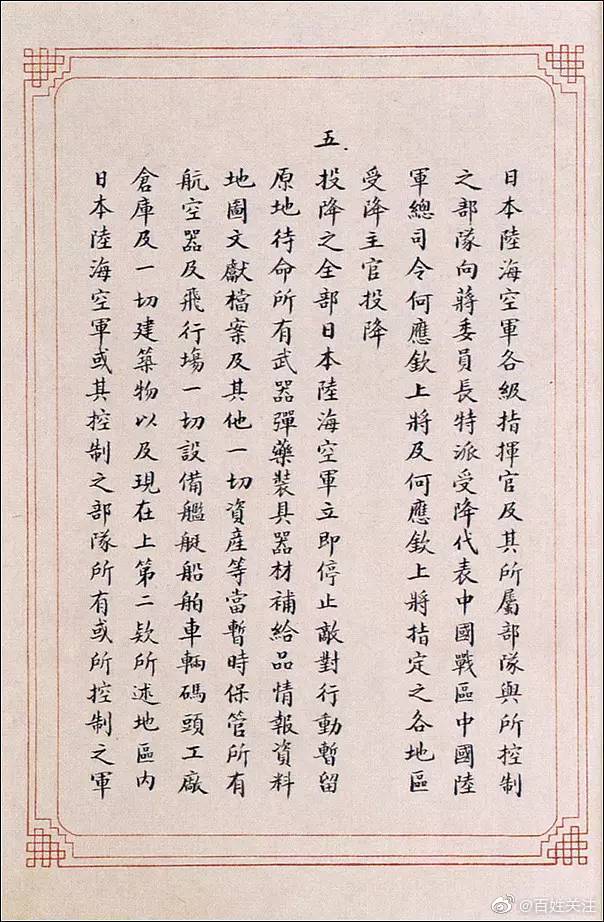 日本陸海空軍各級指揮官及其所屬部隊與所控制
之部隊向蔣委員長特派受降代表中國戰區中國陸
軍總司令何應欽上將及何應欽上將指定之各地區
受降主官投降
五.
投降之全部日本陸海空軍立即停止敵對行動暫留
原地待命所有武器彈藥裝具器材補給品情報資料
地圖文獻檔案及其他一切資產等當暫時保管所有
航空器及飛行場一切設備艦艇船舶車輛碼頭工廠
倉庫及一切建築物以及現在上第二款所述地區內
日本陸海空軍或其控制之部隊所有或所控制之軍
@百姓关注